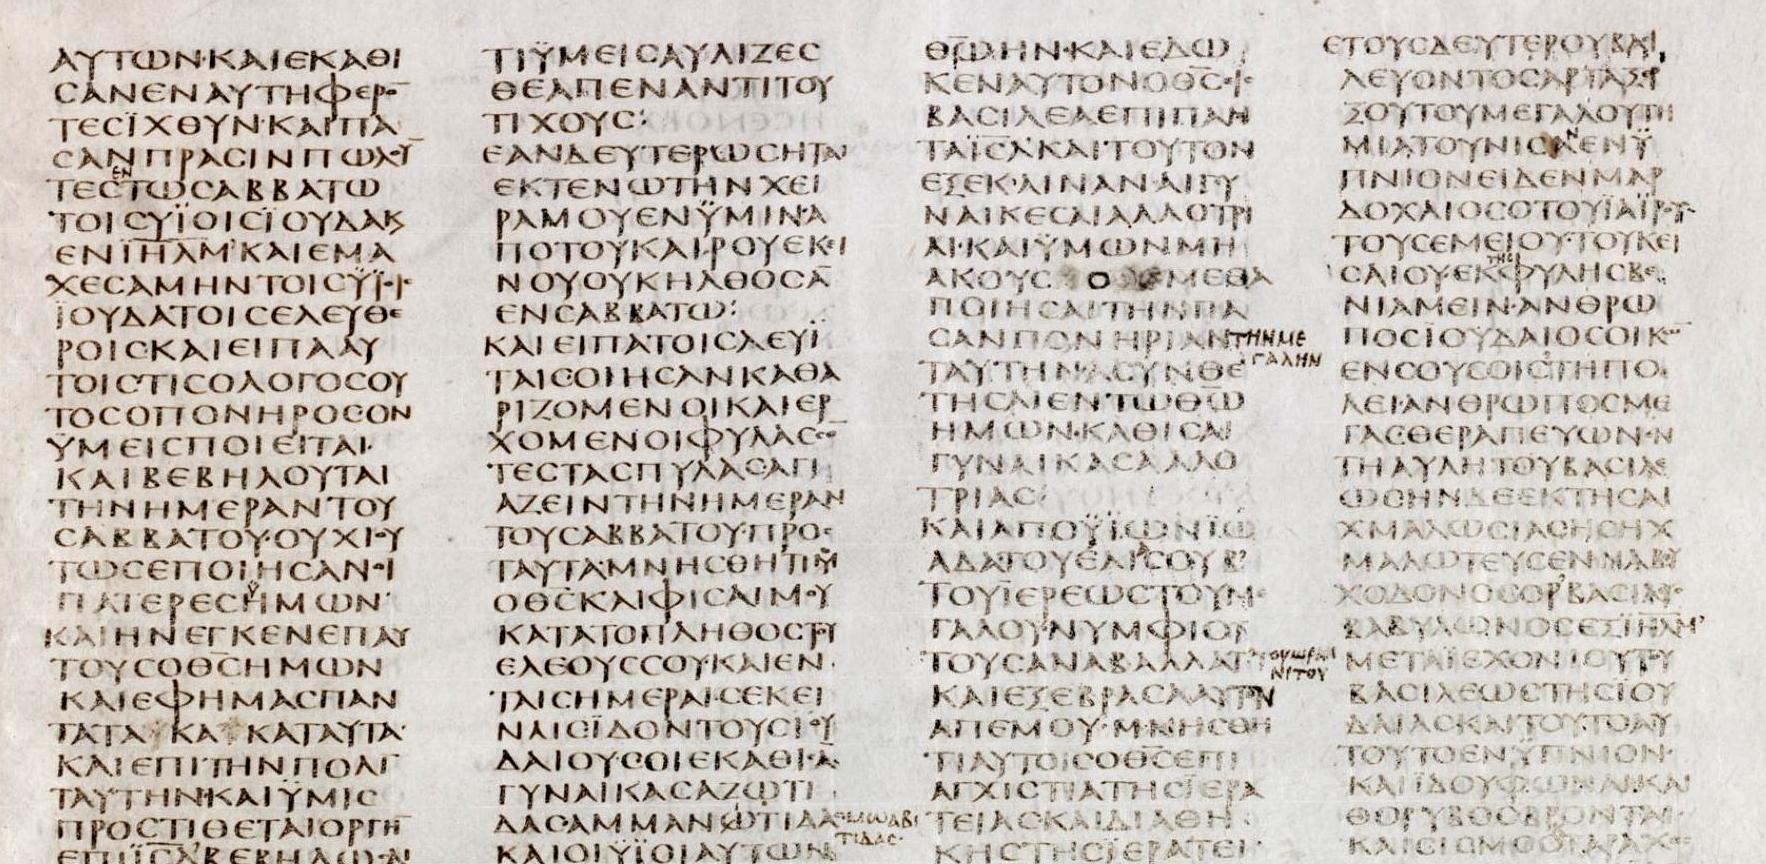 ΑΥΤΩΝ·ΚΑΙΕΚΑΘΙ
ΣΑΝΕΝΑΥΤΗΦΕΡΟ̅
ΤΕΣΪΧΘΥΝ·ΚΑΙΠΑ
ΣΑΝΠΡΑΣΙΝΠΩΛΟΥ̅
ΤΕΣΕΝΤΩΣΑΒΒΑΤΩ
ΤΟΙΣΥΪΟΙΣΪΟΥΔΑΚ
ΕΝΙΗΛΜ·ΚΑΙΕΜΑ
ΧΕΣΑΜΗΝΤΟΙΣΫΪΟΙ
ΪΟΥΔΑΤΟΙΣΕΛΕΥΘΕ
ΡΟΙΣΚΑΙΕΙΠΑΑΥ
ΤΟΙΣΤΙΣΟΛΟΓΟΣΟΥ
ΤΟΣΟΠΟΝΗΡΟΣΟΝ
ΫΜΕΙΣΠΟΙΕΙΤΑΙ·
ΚΑΙΒΕΒΗΛΟΥΤΑΙ
ΤΗΝΗΜΕΡΑΝΤΟΥ
ΣΑΒΒΑΤΟΥ·ΟΥΧΙΟΥ
ΤΩΣΕΠΟΙΗΣΑΝΟΙ
ΠΑΤΕΡΕΣΗΜΩΝ
ΚΑΙΗΝΕΓΚΕΝΕΠΑΥ
ΤΟΥΣΟΘΣΗΜΩΝ
ΚΑΙΕΦΗΜΑΣΠΑΝ
ΤΑΤΑ ΚΑ ΚΑΤΑΥΤΑ
ΚΑΙΕΠΙΤΗΝΠΟΛΙ
ΤΑΥΤΗΝΚΑΙΫΜΙΣ
ΠΡΟΣΤΙΘΕΤΑΙΟΡΓΗ
ΤΙΫΜΕΙΣΑΥΛΙΖΕΣ
ΘΕΑΠΕΝΑΝΤΙΤΟΥ
ΤΙΧΟΥΣ:
ΕΑΝΔΕΥΤΕΡΩΣΗΤΑΙ
ΕΚΤΕΝΩΤΗΝΧΕΙ
ΡΑΜΟΥΕΝΫΜΙΝΑ
ΠΟΤΟΥΚΑΙΡΟΥΕΚΕΙ
ΝΟΥΟΥΚΗΛΘΟΣΑ̅
ΕΝΣΑΒΒΑΤΩ:
ΚΑΙΕΙΠΑΤΟΙΣΛΕΥΪ
ΤΑΙΣΟΙΗΣΑΝΚΑΘΑ
ΡΙΖΟΜΕΝΟΙΚΑΙΕΡ
ΧΟΜΕΝΟΙΦΥΛΑΣΣΟ̅
ΤΕΣΤΑΣΠΥΛΑΣΑΓΙ
ΑΖΕΙΝΤΗΝΗΜΕΡΑΝ
ΤΟΥΣΑΒΒΑΤΟΥΠΡΟΣ
ΤΑΥΤΑΜΝΗΣΘΗΤΙΜΟΥ
ΟΘΣΚΑΙΦΙΣΑΙΜΟΥ
ΚΑΤΑΤΟΠΛΗΘΟΣΤΟΥ
ΕΛΕΟΥΣΣΟΥΚΑΙΕΝ
ΤΑΙΣΗΜΕΡΑΙΣΕΚΕΙ
ΝΑΙΣΪΔΟΝΤΟΥΣΙΟΥ
ΔΑΙΟΥΣΟΙΕΚΑΘΙΣΑ̅
ΓΥΝΑΙΚΑΣΑΖΩΤΙ
ΔΑΣΑΜΜΑΝΩΤΙΔΑΣ ΜΩΑΒΙ
ΤΙΔΑΣ
ΚΑΙΟΙΫΪΟΙΑΥΤΩΝ
ΘΩ̅ΗΝ·ΚΑΙΕΔΩ
ΚΕΝΑΥΤΟΝΟΘΣ
ΒΑΣΙΛΕΑΕΠΙΠΑΝ
ΤΑΪΣΛΚΑΙΤΟΥΤΟΝ
ΕΞΕΚΛΙΝΑΝΑΙΓΥ
ΝΑΙΚΕΣΑΙΑΛΛΟΤΡΙ
ΑΙ·ΚΑΙΫΜΩΝΜΗ
ΑΚΟΥΣ Ο ΜΕΘΑ
ΠΟΙΗΣΑΙΤΗΝΠΑ
ΣΑΝΠΟΝΗΡΙΑΝ ΤΗΝΜΕ
ΓΑΛΗΝ
ΤΑΥΤΗΝΑΣΥΝΘΕ
ΤΗΣΑΙΕΝΤΩΘΩ
ΗΜΩΝ·ΚΑΘΙΣΑΙ
ΓΥΝΑΙΚΑΣΑΛΛΟ
ΤΡΙΑΣ:
ΚΑΙΑΠΟΫΪΩΝΪΩ
ΑΔΑΤΟΥΕΛΙΣΟΥΒ
ΤΟΥΪΕΡΕΩΣΤΟΥΜΕ
ΓΑΛΟΥΝΥΜΦΙΟΥ
ΤΟΥΣΑΝΑΒΑΛΛΑΤ ΤΟΥΩΡΩ
ΝΙΤΟΥ
ΚΑΙΕΞΕΒΡΑΣΑΑΥΤΟΝ
ΑΠΕΜΟΥ·ΜΝΗΣΘΗ
ΤΙΑΥΤΟΙΣΟΘΣΕΠΙ
ΑΓΧΙΣΤΙΑΤΗΣΪΕΡΑ
ΤΕΙΑΣΚΑΙΔΙΑΘΗ
ΚΗΣΤΗΣΪΕΡΑΤΕΙ
ΕΤΟΥΣΔΕΥΤΕΡΟΥΒΑΣΙ
ΛΕΥΟΝΤΟΣΑΡΤΑΞΕΡ
ΞΟΥΤΟΥΜΕΓΑΛΟΥΤΗ
ΜΙΑΤΟΥΝΙΣΑΝΕΝΫ
ΠΝΙΟΝΕΙΔΕΝΜΑΡ
ΔΟΧΑΙΟΣΟΤΟΥΪΑΪΡΟΥ
ΤΟΥΣΕΜΕΙΟΥ·ΤΟΥΚΕΙ
ΣΑΙΟΥΕΚΤΗΣΦΥΛΗΣΒΕ
ΝΙΑΜΕΙΝΑΝΘΡΩ
ΠΟΣΪΟΥΔΑΙΟΣΟΙΚΩ̅
ΕΝΣΟΥΣΟΙΣΤΗΠΟ
ΛΕΙΑΝΘΡΩΠΟΣΜΕ
ΓΑΣΘΕΡΑΠΕΥΩΝΕΝ
ΤΗΑΥΛΗΤΟΥΒΑΣΙΛΕ
ΩΣΗΝΔΕΕΚΤΗΣΑΙ
ΧΜΑΛΩΣΙΑΣΗΣΗΧ
ΜΑΛΩΤΕΥΣΕΝΝΑΒΟΥ
ΧΟΔΟΝΟΣΟΡΒΑΣΙΛΕΥΣ
ΒΑΒΥΛΩΝΟΣΕΞΙΗΛΜ
ΜΕΤΑΪΕΧΟΝΙΟΥΤΟΥ
ΒΑΣΙΛΕΩΣΤΗΣΪΟΥ
ΔΑΙΑΣΚΑΙΤΟΥΤΟΑΥ
ΤΟΥΤΟΕΝΫΠΝΙΟΝ
ΚΑΙΪΔΟΥΦΩΝΑΙΚΑΙ
ΘΟΡΥΒΟΣΒΡΟΝΤΑΙ